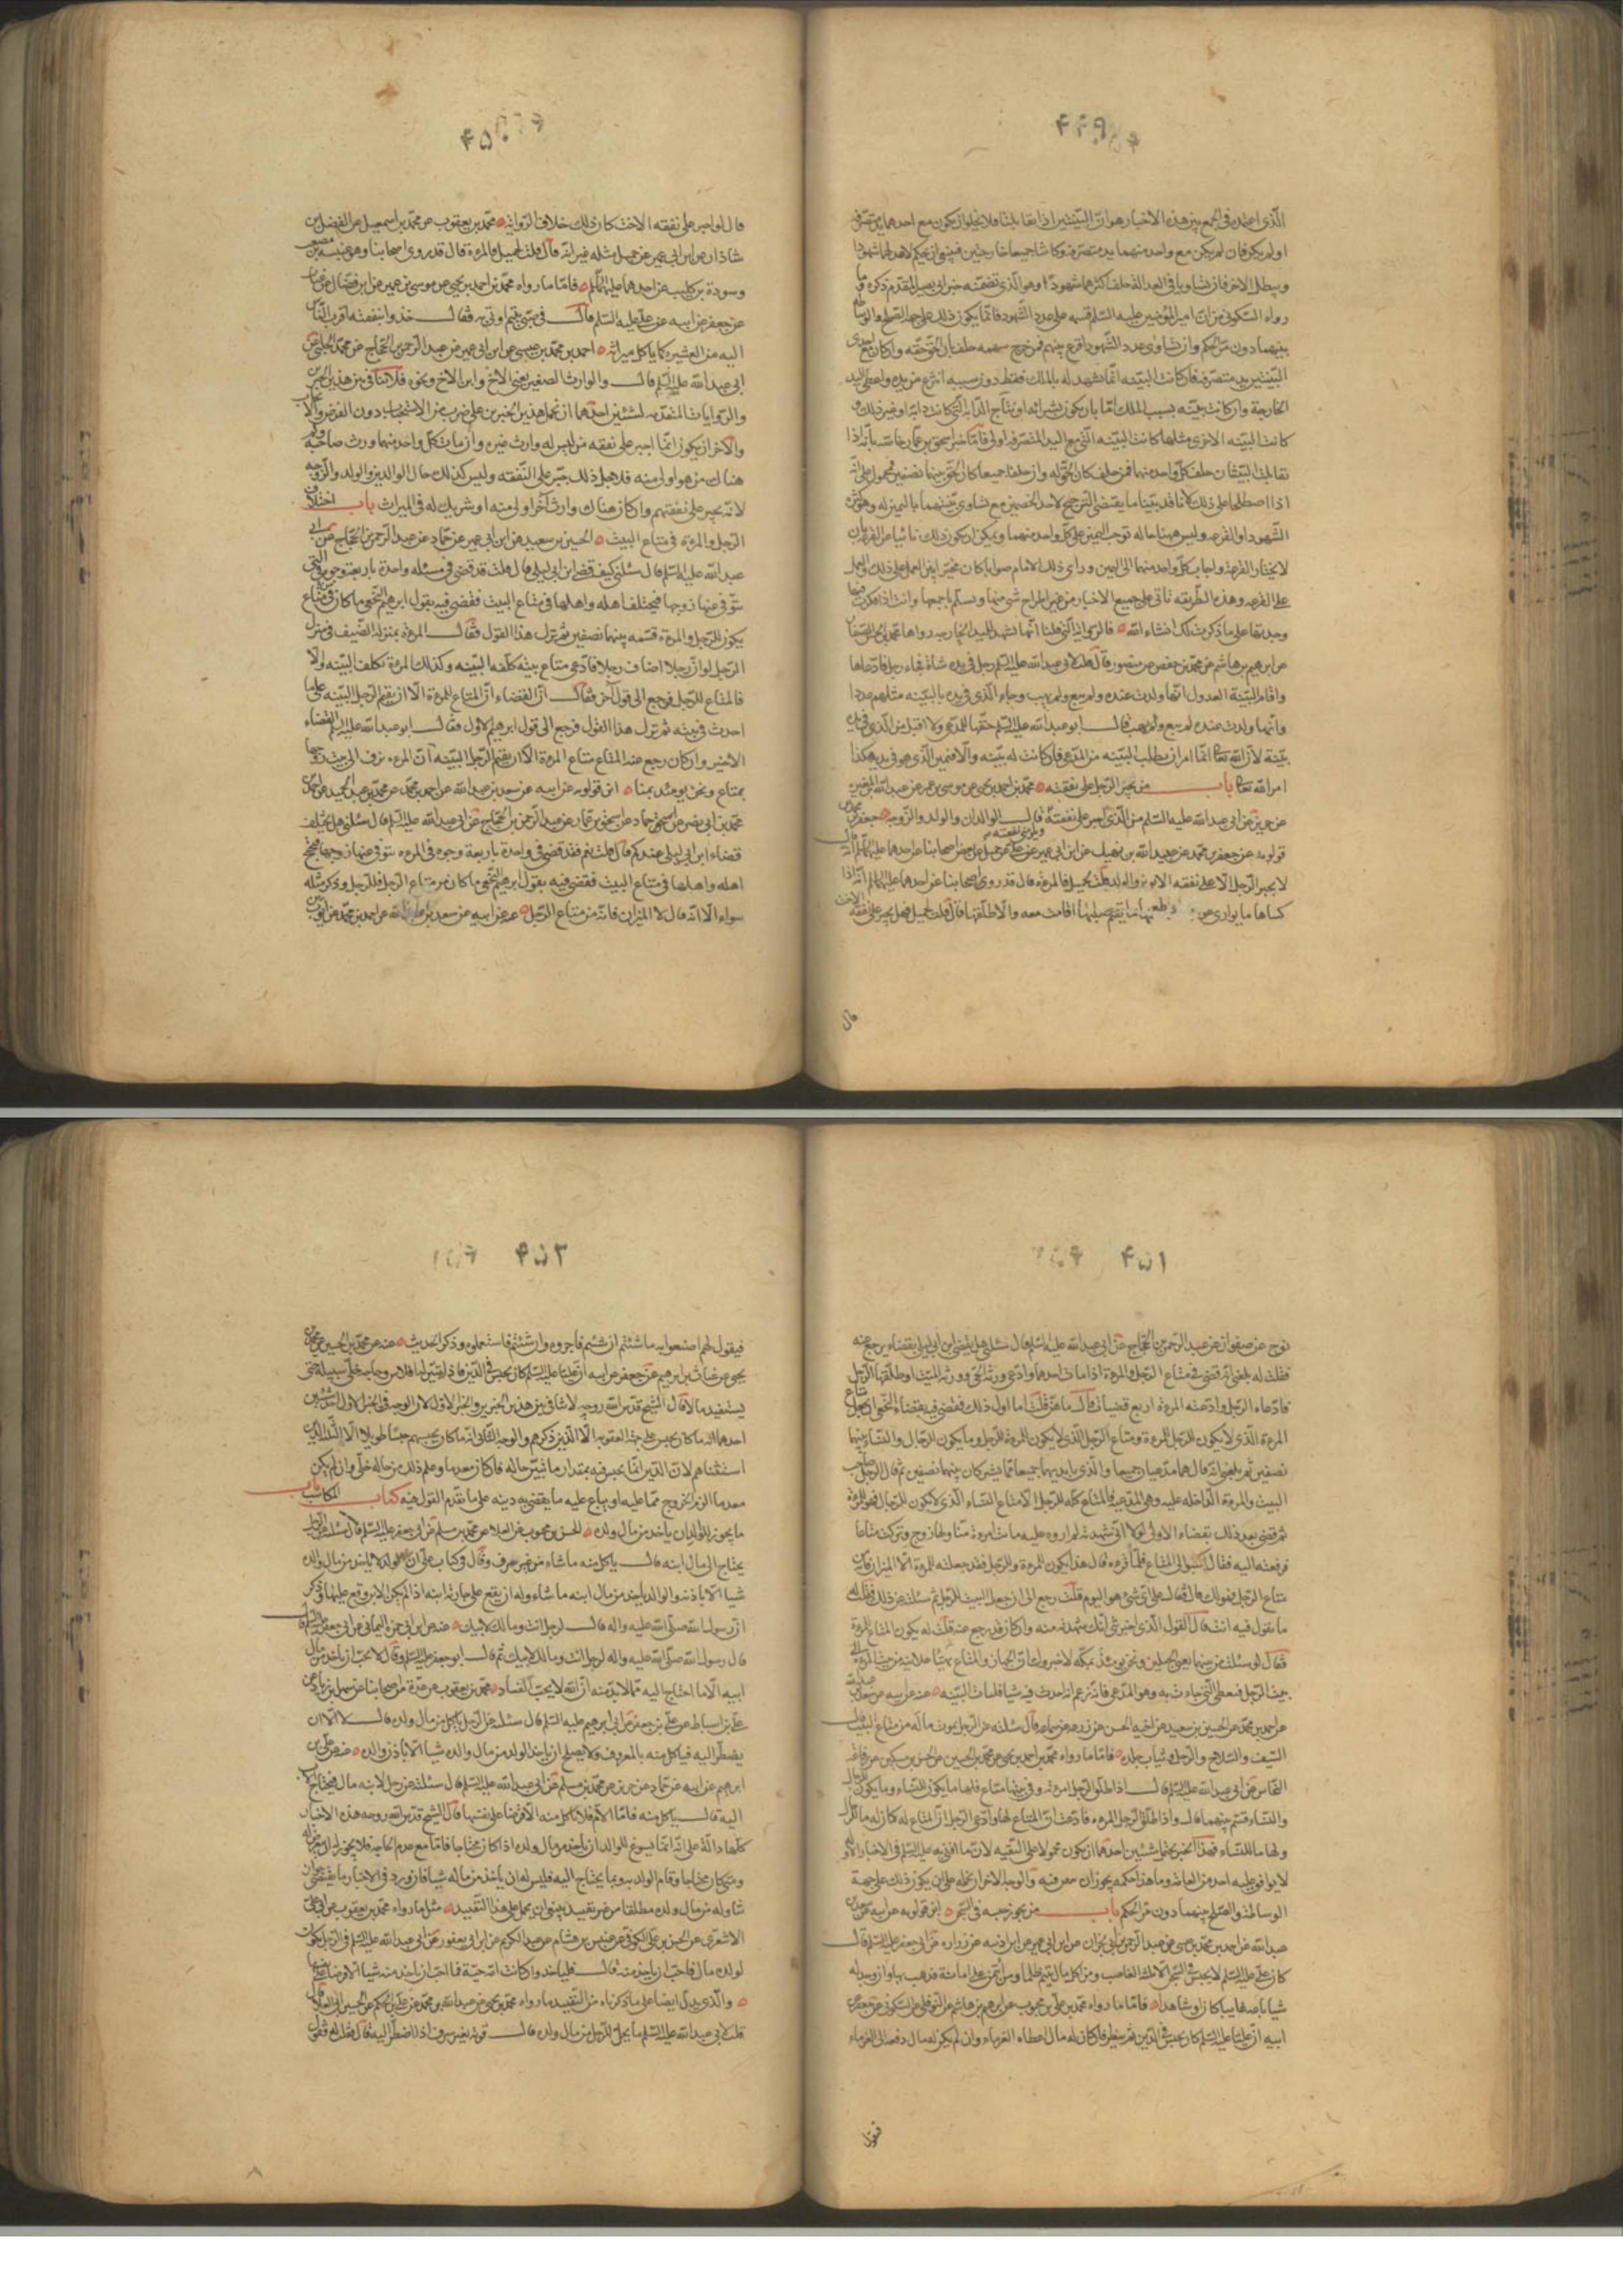 ۴۴۹
الّذی اعتمده فی الجمع بین هذه الاخبار هو انّ البیّنتین اذا تقابلتا فلا یخلو ان یکون مع احدهما ید متصرّفه
او لم یکن فان لم یکن مع واحد منهما ید متصرّفه وکانتا جمیعا خارجتین فینبغی ان یحکم لاعدلهما شهودا
ویبطل الاخر فان تساویا فی العداله حلف اکثرهما شهودا وهو الّذی تضمّنه خبر ابی بصیر المتقدم ذکره وما
رواه السکونی من انّ امیر المؤمنین علیه السّلم قسمه علی عدد الشهود فانّما یکون ذلک علی جهة الصلح والوساطه
بینهما دون مرّ الحکم وان تساوی عدد الشهود اقرع بینهم فمن خرج سهمه حلف بان الحق حقه وان کان مع احدی
البیّنتین ید متصرّفه فان کانت البیّنه انّما تشهد له بالملک فقط دون سببه انتزع من یده واعطی الید
الخارجة وان کانت بیّنته بسبب الملک امّا بان یکون بشرائه او نتاج الدّابه ان کانت دابة او غیر ذلک و
کانت البیّنه الاخری مثلها کانت البیّنه الّتی مع الید المتصرّفه اولی فامّا خبر اسحق بن عمّار خاصّة بانّه اذا
تقابلت البیّنتان حلف کلّ واحد منهما فمن حلف کان الحق له وان حلفا جمیعا کان الحق بینهما نصفین فمحمول علی انّه
اذا اصطلحا علی ذلک لانّا قد بیّنّا ما یقتضی الترجیح لاحد الخصمین مع تساوی بیّنتهما بالیمین له وهو کثرة
الشّهود او القرعه ولیس ههنا حاله توجب الیمین علی کلّ واحد منهما ویمکن ان یکون ذلک نائبا عن القرعه بان
لا یختار القرعة واجاب کلّ واحد منهما الی الیمین ورأی ذلک الامام صوابا کان مخیّرا بین العمل علی ذلک والعمل
علی القرعه وهذه الطّریقه تأتی علی جمیع الاخبار من غیر اطراح شیء منها وتسلّم باجمعها وانت اذا فکرت فیها
وجدتها علی ما ذکرت لک انشاء الله فالروایة الّتی قلنا انّها تشهد للید الخارجه رواها محمّد بن الحسن الصفار
عن ابرهیم بن هاشم عن محمّد بن حفص عن منصور قال قلت لابی عبد الله علیه السّلم رجل فی یده شاة فجاء رجل فادّعاها
واقام البیّنة العدول انّها ولدت عنده ولم یبع ولم یهب وجاء الّذی فی یده بالبیّنه مثلهم عددا
وانّها ولدت عنده لم یبع ولم یهب فقال ابو عبد الله علیه السّلم حقها للمدّعی ولا اقبل من الّذی فی یده
بیّنة لانّ الله تعالی انّما امر ان یطلب البیّنه من المدّعی فان کانت له بیّنه والّا فیمین الّذی هو فی یده هکذا
امر الله تعالی باب من یجبر الرّجل علی نفقته محمّد بن احمد بن یحیی عن موسی بن عمر عن عبد الله بن المغیره
عن حریز عن ابی عبد الله علیه السّلم من الّذی اجبر علی نفقته قال الوالدان والولد والزّوجه جعفر بن محمد بن
قولویه عن جعفر بن محمّد عن عبید الله بن نهیک عن ابن ابی عمیر عن جمیل عن بعض اصحابنا عن احدهما علیهما السّلم انّه قال
لا یجبر الرّجل الّا علی نفقه الابوین والولد قلت لجمیل فالمرءة قال قد روی اصحابنا عن احدهما علیهما السّلم انّه اذا
کساها ما یواری عورتها ویطعمها ما یقیم صلبها اقامت معه والّا طلّقها قال قلت لجمیل فهل یجبر علی نفقة الاخت
قال
۴۵۰
قال لو اجبر علی نفقه الاخت کان ذلک خلاف الروایة محمّد بن یعقوب عن محمّد بن اسمعیل عن الفضل بن
شاذان عن ابن ابی عمیر عن جمیل مثله غیر انّه قال قلت لجمیل والمرءة قال قد روی اصحابنا وهو عنبسه بن مصعب
وسورة بن کلیب عن احدهما علیهما السّلم فامّا ما رواه محمّد بن احمد بن یحیی عن موسی بن عمر عن ابن فضّال عن غیاث
عن جعفر عن ابیه عن علی علیه السّلم قال فی صبیّ یتیم اوتی به فقال خذوا بنفقته اقرب النّاس
الیه من العشیره کما یأکل میراثه احمد بن محمّد بن عیسی عن ابن ابی عمیر عن عبد الرّحمن بن الحجّاج عن محمّد الحلبی عن
ابی عبد الله علیه السّلم قال والوارث الصغیر یعنی الاخ وابن الاخ ونحوه فلا تنافی بین هذین الخبرین
والرّوایات المتقدّمه لشیئین احدهما ان نحمل هذین الخبرین علی ضرب من الاستحباب دون الفرض والایجاب
والاخر ان یکون انّما اجبر علی نفقه من لیس له وارث غیره وان مات کلّ واحد منهما ورث صاحبه ولم
هناک من هو اولی منه فلاجل ذلک جبر علی النّفقه ولیس کذلک حال الوالدین والولد والزّوجه
لانّه یجبر علی نفقتهم وان کان هناک وارث آخر اولی منه او شریک له فی المیراث باب اختلاف
الرّجل والمرءة فی متاع البیت الحسین بن سعید عن ابن ابی عمیر عن حمّاد عن عبد الرّحمن بن الحجّاج عن ابی
عبد الله علیه السّلم قال سئلنی کیف قضاء ابن ابی لیلی قال قلت قد قضی فی مسئله واحدة باربعة وجوه فی الّتی
یتوفّی عنها زوجها فیختلف اهله واهلها فی متاع البیت فقضی فیه بقول ابرهیم النّخعی ما کان من متاع
یکون للرّجل والمرءة قسمه بینهما نصفین ثم ترک هذا القول فقال المرءة بمنزلة الضّیف فی منزل
الرّجل لو انّ رجلا اضاف رجلا فادّعی متاع بیته کلّفه البیّنه وکذلک المرءة تکلف البیّنه والّا
فالمتاع للرّجل فرجع الی قول آخر فقال انّ القضاء انّ المتاع للمرءة الّا ان یقیم الرّجل البیّنه علی ما
احدث فی بیته ثم ترک هذا القول فرجع الی قول ابرهیم الاول فقال ابو عبد الله علیه السّلم القضاء
الاخیر وان کان رجع عنه المتاع متاع المرءة الّا ان یقیم الرّجل البیّنه
بمتاع ونحن یومئذ بمنا ابن قولویه عن ابیه عن سعد بن عبد الله عن احمد بن محمّد عن محمّد بن عبد الحمید عن
محمّد بن ابی نصر عن عبد الرّحمن بن الحجّاج عن ابی عبد الله علیه السّلم قال سئلنی هل یختلف
قضاء ابن ابی لیلی عندکم قال قلت نعم فقد قضی فی واحدة باربعة وجوه فی المرءه یتوفّی عنها زوجها
اهله واهلها فی متاع البیت فقضی فیه بقول ابرهیم النّخعی ما کان من متاع الرّجل فللرّجل وذکر مثله
سواء الّا انّه قال الّا المیزان فانّه من متاع الرّجل عنه عن ابیه عن سعد بن عبد الله عن احمد بن محمّد عن ایوب بن
۴۵۱
نوح عن صفوان عن عبد الرّحمن بن الحجّاج عن ابی عبد الله علیه السّلم قال سئلنی هل یقضی ابن ابی لیلی بقضاء یرجع عنه
فقلت له بلغنی انّه قضی فی متاع الرّجل والمرءة اذا مات احدهما وادّعی ورثة الحیّ وورثة المیّت او طلّقها الرّجل
فادّعاه الرّجل وادّعته المرءة اربع قضیّات قال ما هنّ قلت امّا اول ذلک فقضی فیه بقضاء النّخعی ان یجعل متاع
المرءة الّذی لا یکون للرّجل للمرءة ومتاع الرّجل الّذی لا یکون للمرءة للرّجل وما یکون للرّجال والنّساء بینهما
نصفین ثم بلغنی انّه قال هما مدّعیان جمیعا والّذی بایدیهما جمیعا ممّا یشرکان بینهما نصفین ثم قال الرّجل صاحب
البیت والمرءة الدّاخله علیه وهی المدّعیه فالمتاع کلّه للرّجل الّا متاع النّساء الّذی لا یکون للرّجال فهو للمرءة
ثم قضی بعد ذلک بقضاء لولا انّی شهدته لم اروه علیه ماتت امرءة منّا ولها زوج وترکت متاعا
فرفعته الیه فقال اکتبوا لی المتاع فلمّا قرءه قال هذا یکون للمرءة وللرّجل فقد جعلته للمرءة الّا المیزان فانّه من
متاع الرّجل فهو لک قال فقال لی علی ایّ شیء هو الیوم قلت رجع الی ان جعل البیت للرّجل ثم سئلته عن ذلک فقلت له
ما تقول فیه انت قال القول الّذی اخبرتنی انّک شهدته منه وان کان قد رجع عنه قلت له یکون المتاع للمرءة
فقال لو سئلت من بینهما یعنی الجبلین ونحن یومئذ بمکّه لاخبروک انّ الجهاز والمتاع یهدی علانیه من بیت المرءة الی
بیت الرّجل فتعطی الّتی جاءت به وهو المدّعی فان زعم انّه احدث فیه شیئا فلیأت البیّنه
عن احمد بن محمّد عن الحسین بن سعید عن اخیه الحسن عن زرعه عن سماعه قال سئلته عن الرّجل یموت ما له من متاع البیت قال
السّیف والسّلاح والرّحل وثیاب جلده فامّا ما رواه محمّد بن احمد بن یحیی عن محمّد بن الحسین عن الحسن بن مسکین عن رفاعه
النّخاس عن ابی عبد الله علیه السّلم قال اذا طلّق الرّجل امرءته وفی بیتها متاع فلها ما یکون للنّساء وما یکون للرّجال
والنّساء قسم بینهما قال واذا طلّق الرّجل المرءه فادّعت انّ المتاع لها وادّعی الرّجل انّ المتاع له کان له ما للرّجال
ولها ما للنّساء فهذا الخبر یحتمل شیئین احدهما ان یکون محمولا علی التّقیه لانّ ما افتی به علیه السّلم فی الاخبار الاوّله
لا یوافق علیه احد من العامّة وما هذا حکمه یجوز ان والوجه الاخر ان نحمله علی ان یکون ذلک علی جهة
الوساطة والصّلح بینهما دون مرّ الحکم باب من یجوز حبسه فی السّجن ابن قولویه عن ابیه عن سعد بن
عبد الله عن احمد بن محمّد بن عیسی عن عبد الرّحمن بن ابی نجران عن ابن ابی عمیر عن ابن اذینه عن زراره عن ابی جعفر علیه السّلم قال
کان علی علیه السّلم لا یحبس فی السّجن الّا ثلثة الغاصب ومن اکل مال یتیم ظلما ومن اؤتمن علی امانة فذهب بها وان وجد له
شیئا باعه غایبا کان او شاهدا فامّا ما رواه محمّد بن علی بن محبوب عن ابرهیم بن هاشم عن النّوفلی عن السّکونی عن جعفر عن
ابیه انّ علیّا علیه السّلم کان یحبس فی الدّین ثم ینظر فان کان له مال اعطاه الغرماء وان لم یکن له مال دفعه الی الغرماء
فیقول
۴۵۲
فیقول لهم اصنعوا به ما شئتم ان شئتم فآجروه وان شئتم فاستعملوه وذکر الحدیث عنه عن محمّد بن الحسین عن محمّد بن
یحیی عن غیاث بن ابرهیم عن جعفر عن ابیه انّ علیّا علیه السّلم کان یحبس فی الدّین فاذا تبیّن له افلاس وحاجه خلّی سبیله حتی
یستفید مالا قال الشیخ قدّس الله روحه لا تنافی بین هذین الخبرین والخبر الاوّل لانّ الوجه فی الخبر الاوّل احد شیئین
احدهما انّه ما کان یحبس علی جهة العقوبه الّا الّذین ذکرهم والوجه الثّانی انّه ما کان یحبسهم حبسا طویلا الّا الثّلثة الّذین
استثناهم لانّ الدّین انّما یحبس فیه بمقدار ما یتبیّن حاله فان کان معدما وعلم ذلک من حاله خلّی وان لم یکن
معدما الزم الخروج ممّا علیه او یباع علیه ما یقضی به دینه علی ما تقدّم القول فیه کتاب المکاسب باب
ما یجوز للوالدان یأخذ من مال ولده الحسن بن محبوب عن العلاء عن محمّد بن مسلم عن ابی جعفر علیه السّلم قال سئلته عن الرّجل
یحتاج الی مال ابنه قال یأکل منه ما شاء من غیر سرف وقال فی کتاب علی انّ الولد لا یأخذ من مال والده
شیئا الّا باذنه والوالد یأخذ من مال ابنه ما شاء وله ان یقع علی جاریة ابنه اذا لم یکن الابن وقع علیها وذکر
انّ رسول الله صلّی الله علیه واله قال لرجل انت ومالک لابیک عنه عن ابی حمزه الثمالی عن ابی جعفر علیه السّلم قال
قال رسول الله صلّی الله علیه واله لرجل انت ومالک لابیک ثم قال ابو جعفر علیه السّلم وقال لا نحبّ ان یأخذ من مال
ابنه الّا ما احتاج الیه ممّا لا بدّ منه انّ الله لا یحبّ الفساد محمّد بن یعقوب عن عدّة من اصحابنا عن سهل بن زیاد عن
علی بن اسباط عن علی بن جعفر عن ابی ابرهیم علیه السّلم قال سئلته عن الرّجل یأکل من مال ولده قال لا الّا ان
یضطرّ الیه فیأکل منه بالمعروف ولا یصلح ان یأخذ الولد من مال والده شیئا الّا باذن والده عنه عن علی بن
ابرهیم عن ابیه عن حمّاد عن حریز عن محمّد بن مسلم عن ابی عبد الله علیه السّلم قال سئلته عن رجل لابنه مال فیحتاج الاب
الیه قال یأکل منه فامّا الامّ فلا تأکل منه الّا قرضا علی نفسها قال الشیخ قدّس الله روحه هذه الاخبار
کلّها دالّة علی انّه انّما یسوغ للوالد ان یأخذ من مال ولده اذا کان محتاجا فامّا مع عدم الحاجه فلا یجوز له ان یتعرّض له
ومتی کان محتاجا وقام الولد به وبما یحتاج الیه فلیس له ان یأخذ من ماله شیئا فان ورد فی الاخبار ما یقتضی جواز
تناوله من مال ولده مطلقا من غیر تقیید ینبغی ان یحمل علی هذا التقیید مثل ما رواه محمّد بن یعقوب عن ابی علی
الاشعری عن الحسن بن علی الکوفی عن عبیس بن هشام عن عبد الکریم عن ابن ابی یعفور عن ابی عبد الله علیه السّلم فی الرّجل یکون
لولده مال فاحبّ ان یأخذ منه قال فلیأخذ وان کانت امّه حیّة فما احبّ ان تأخذ منه شیئا الّا قرضا علی نفسها
والّذی یدلّ ایضا علی ما ذکرناه من التقیید ما رواه محمّد بن یحیی عن عبد الله بن محمّد عن علی بن الحکم عن الحسین بن ابی العلاء قال
قلت لابی عبد الله علیه السّلم ما یحلّ للرّجل من مال ولده قال قوته بغیر سرف اذا اضطرّ الیه قال فقلت له فقول